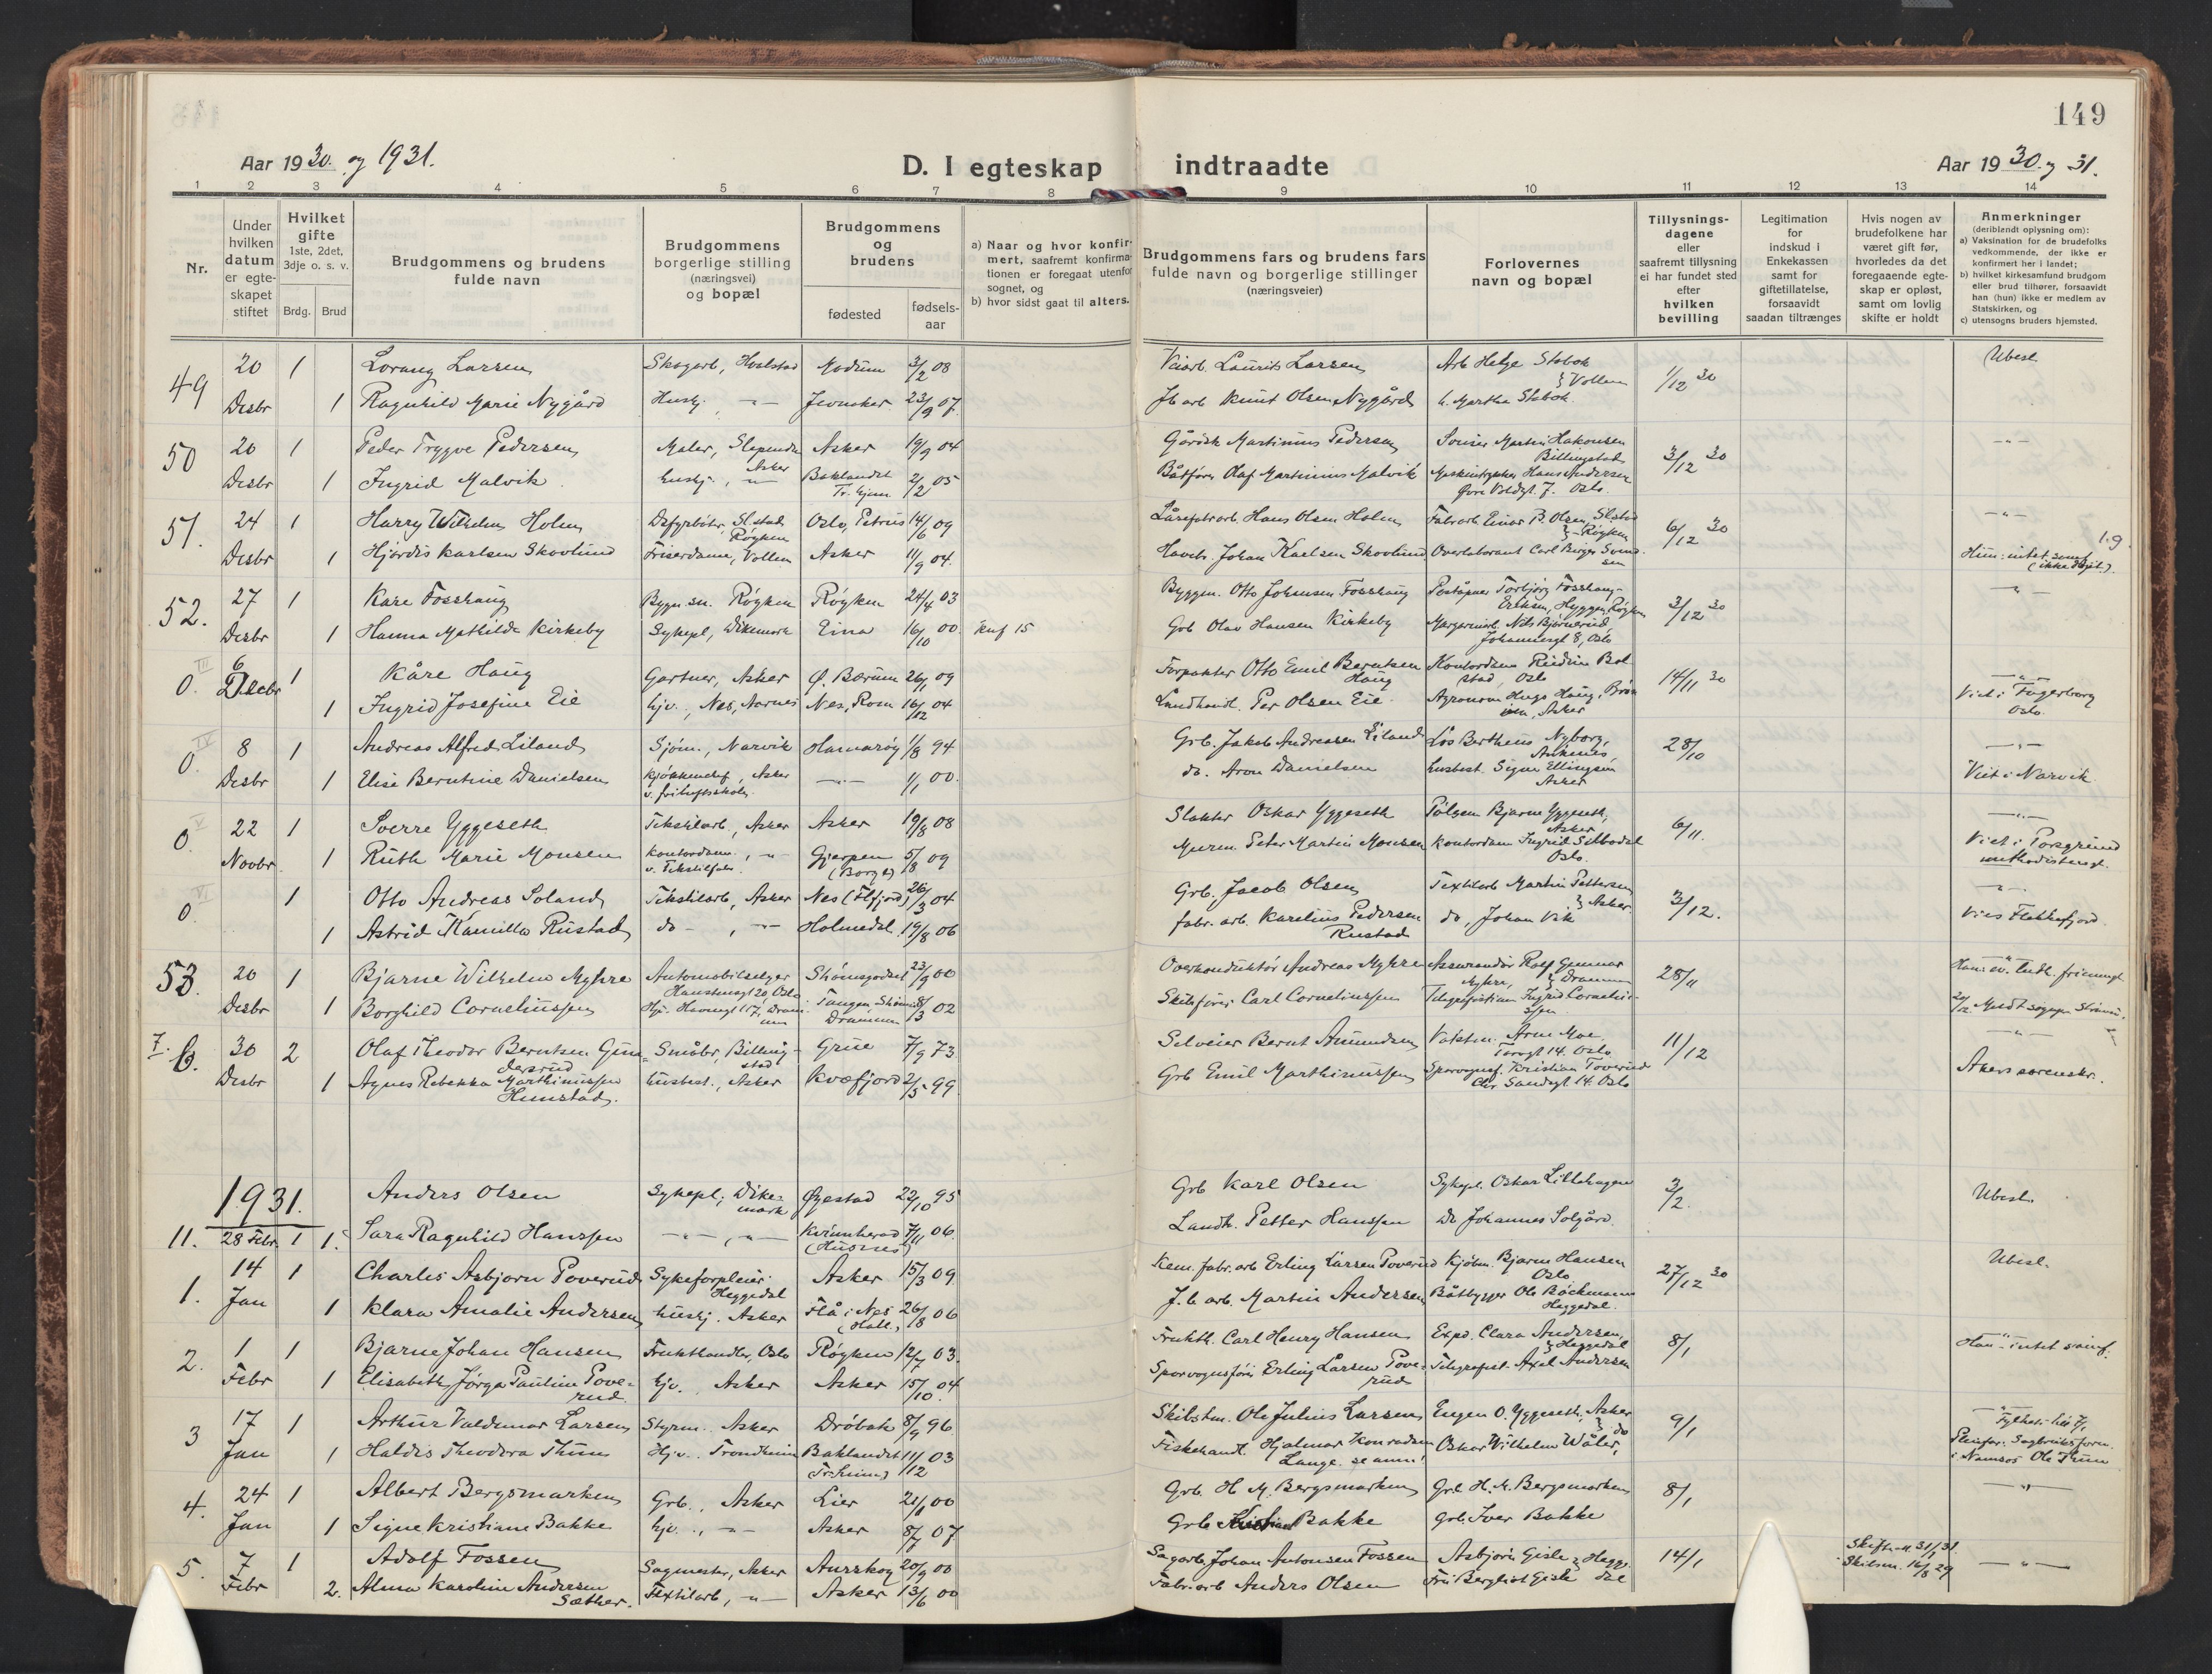 149
Aar 1930. og 1931.
D. I egteskap indtraadte
Aar 1930. og 31.
1 2 3 4 5 6 7 8 9 10 11 12 13 14
Nr.
Under hvilken datum er egteskapet stiftet
Hvilket gifte 1ste, 2det, 3dje o. s. v.
Brdg. Brud
Brudgommens og brudens fulde navn
Brudgommens borgerlige stilling (næringsvei) og bopæl
Brudgommens og brudens
fødested
fødsels-aar
a) Naar og hvor konfirmert, saafremt konfirmationen er foregaat utenfor sognet, og
b) hvor sidst gaat til alters.
Brudgommens fars og brudens fars fulde navn og borgerlige stillinger (næringsveier)
Forlovernes navn og bopæl
Tillysningsdagene eller saafremt tillysning ei har fundet sted efter hvilken bevilling
Legitimation for indskud i Enkekassen samt for giftetillatelse, forsaavidt saadan tiltrænges
Hvis nogen av brudefolkene har været gift før, hvorledes da det foregaaende egteskap er opløst, samt om lovlig skifte er holdt
Anmerkninger (deriblandt oplysning om):
a) Vaksination for de brudefolks vedkommende, der ikke er konfirmert her i landet;
b) hvilket kirkesamfund brudgom eller brud tilhører, forsaavidt han (hun) ikke er medlem av Statskirken, og
c) utensogns bruders hjemsted.
49 20 1 Lorang Larsen Skogarb, Hvalstad Modum 3/2 08 Veiarb. Laurits Larsen Arb Helge Stabek } Vollen 1/12 30 Ubesl.
Desbr 1 Ragnhild Marie Nygård Hushj. -"- Jevnaker 23/9 07. Jb arb Knut Olsen Nygård
50 20 1 Peder Trygve Pedersen Maler, Slependen Asker Asker 19/9 04 Martinus Pedersen Martin Hakonsen Billingstad 3/12 30 -"-
Desbr 1 Ingrid Malvik hushj., -"- Baklandet Tr. hjem 2/2 05 Båtfører Olaf Martinius Malvik Hans Andersen Øvre Voldgt. 7. Oslo.
51. 24 1 Harry Wilhelm Holm Slstad Røyken Oslo, Petrus 14/6 09 Hans Olsen Holm Fabrarb Einar B. Olsen Slstad } Røyken 6/12 30 -"-
Desbr 1 Hjørdis Karlsen Skovlund Friserdame, Vollen Asker 11/9 04. Johan Karlsen Skovlund Overlaborant Carl Birger Svendsen Hun: intet samf. (ikke døpt).
52. 27 1 Kåre Fosshaug Bygn.sn. Røyken Røyken 24/4 03 Byggm. Otto Johansen Fosshaug Poståpner Torbjørg Fosshaug-Eriksen, Hyggen, Røyken 3/12 30 -"-
Desbr 1 Hanna Mathilde Kirkeby Sykepl, Dikemark Eina 16/10 00. Konf 15 Grb Olav Hansen Kirkeby Nils Bjørnerud Johannesgt 8, Oslo
0. III 6 Desbr 1 Kåre Haug Gartner, Asker Ø. Bærum 26/1 09 Forpakter Otto Emil Berntsen Haug Kontordame Reidun Bolstad, Oslo 14/11 30 -"-
1 Ingrid Josefine Eie hjv., Nes, Aarnes Nes, Rom. 16/12 04 Landhandl. Per Olsen Eie. Agronom Hugo Haug, Asker Viet i Fagerborg Oslo.
0. IV 8 1 Andreas Alfred Liland Sjøm., Narvik Hamarøy 1/8 94 Grb. Jakob Andreasen Liland Bertheus Nyborg, Ankenes 28/10 -"-
Desbr 1 Elise Berntine Danielsen Kjøkkenchef, Asker v. friluftsskolen. -"- 1/1 00. do. Aron Danielsen husbest. Signe Ellingsen Asker Viet i Narvik
0. V 22 1 Sverre Yggeseth Tekstilarb, Asker Asker 19/8 08 Slakter Oskar Yggeseth Bjarne Yggeseth, Asker 6/11. -"-
Novbr. 1 Ruth Marie Monsen Kontordame, -"- v. Tekstilfabr. Gjerpen (Borge) 5/8 09 Murm. Peter Martin Monsen Kontordame Ingrid Selbodal Oslo. Viet i Porsgrund
0. VI 1 Otto Andreas Soland Tekstilarb, Asker Nes (Flfjord) 26/3 04 Grb. Jacob Olsen Textilarb Martin Pettersen } Asker. 3/12. -"-
1 Astrid Kamilla Rustad do -, -"- Holmedal. 19/8 06 fabr. arb. Karelius Pedersen Rustad do, Johan Vik Vies Flekkefjord.
53. 20 1 Bjarne Wilhelm Myhre Automobilselger Oslo Strømsgodset 23/9 00 Overkonduktør Andreas Myhre Assurandør Rolf Gunnar Myhre, } Drammen 28/11 Han: ev. luth. frimengt
Desbr 1 Borghild Corneliussen Hj. Havnegt 17, Drammen Tangen Strømsø Drammen 8/3 02 Skibsfører Carl Corneliussen Telegrafistinne Ingrid Corneliussen
7. b. 30 2 Olaf Theodor Berntsen Gundersrud Småbr, Billingstad Grue 7/9 73. Selveier Bernt Amundsen Arne Moe Torvgt 14. Oslo 11/12 -"-
Desbr 1 Agnes Rebekka Marthinussen Hemstad. husbest., Asker Kvæfjord 2/5 99. Grb Emil Marthinussen Sporvognsf. Kristian Toverud Chr. Sandsgt 14. Oslo Akers sorenskr.
1931.
Anders Olsen Sykepl, Dikemark Øyestad 22/10 95 Grb Karl Olsen Sykepl. Oskar Lillehagen 3/2. Ubesl.
11. 28 Febr. 1 1. Sara Ragnhild Hanssen -"-, -"- Kvinnherad (Husnes) 7/11 06. Landh. Petter Hanssen Do Johannes Solgård.
1. 14 1 Charles Asbjørn Poverud Sykeforpleier Heggedal Asker 15/3 09 Kem. fabr. arb Erling Larsen Poverud Kjøbm. Bjarne Hansen Oslo 27/12 30 Ubesl.
Jan 1 Klara Amalie Andersen hushj. Asker Flå i Nes (Hall.) 26/8 06 J.b arb. Martin Andersen Båtbygger Ole Bøckmann Heggedal.
2. 1 1 Bjarne Johan Hansen Frukthandler, Oslo Røyken 12/7 03. Frukth. Carl Henry Hansen Exp. Clara Andersen, } Heggedal 8/1 Han - intet samf.
Febr 1 Elisabeth Jørga Pauline Poverud hjv. Asker Asker 15/10 04. Sporvognsfører Erling Larsen Poverud Telegrafist. Axel Andersen
3 17 1 Arthur Valdemar Larsen Styrm. Asker Drøbak 8/9 96 Skibstm. Ole Julius Larsen Eugen O. Yggeseth, Asker 9/1 -"-
Jan 1 Haldis Theodora Thun Hjv. Trondheim Baklandet Tr.heim 11/12 03 Fiskehandl. Hjalmar Konradsen Lange. se anm! Oskar Wilhelm Wåler, do i Namsos Ole Thun
4. 24 1 Albert Bergsmarken Grb., Asker Lier 21/1 00 Grb. H M. Bergsmarken Grb H. M. Bergsmarken 8/1 -"-
Jan 1 Signe Kristiane Bakke hjv., -"- Asker 8/7 07. Grb Kristian Bakke Grb. Iver Bakke
5. 7 1 Adolf Fossen Sagmester, Asker Aurskog 20/9 00 Sagarb. Johan Antonsen Fossen Asbjørn Gisle } Heggedal 14/1 Skifteatt 31/1 31. -"-
Febr 2. Alma Karoline Andersen Sæther. Textilarb, -"- Asker 13/6 00 Fabr. arb Anders Olsen Fru Bergliot Gisle Skilsm. 16/8 29